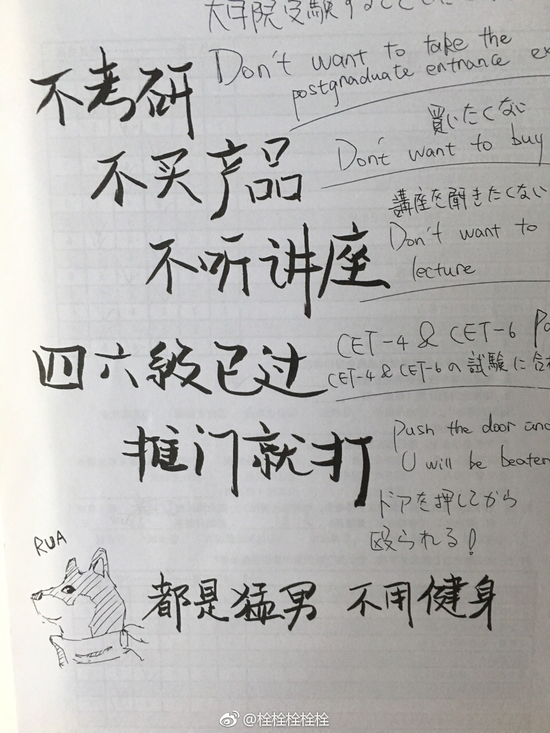 不考研
Don't want to take the
postgraduate entrance
買いたくない
不买产品
Don't want to buy
講座を聞きたくない
不听讲座
Don't want to
lecture
CET-4 & CET-6
四六级已过
CET-4 & CET-6の試験に合
推门就打
Push the door and
U will be beaten
ドアを押してから
殴られる!
RUA
都是猛男 不用健身
@栓栓栓栓栓